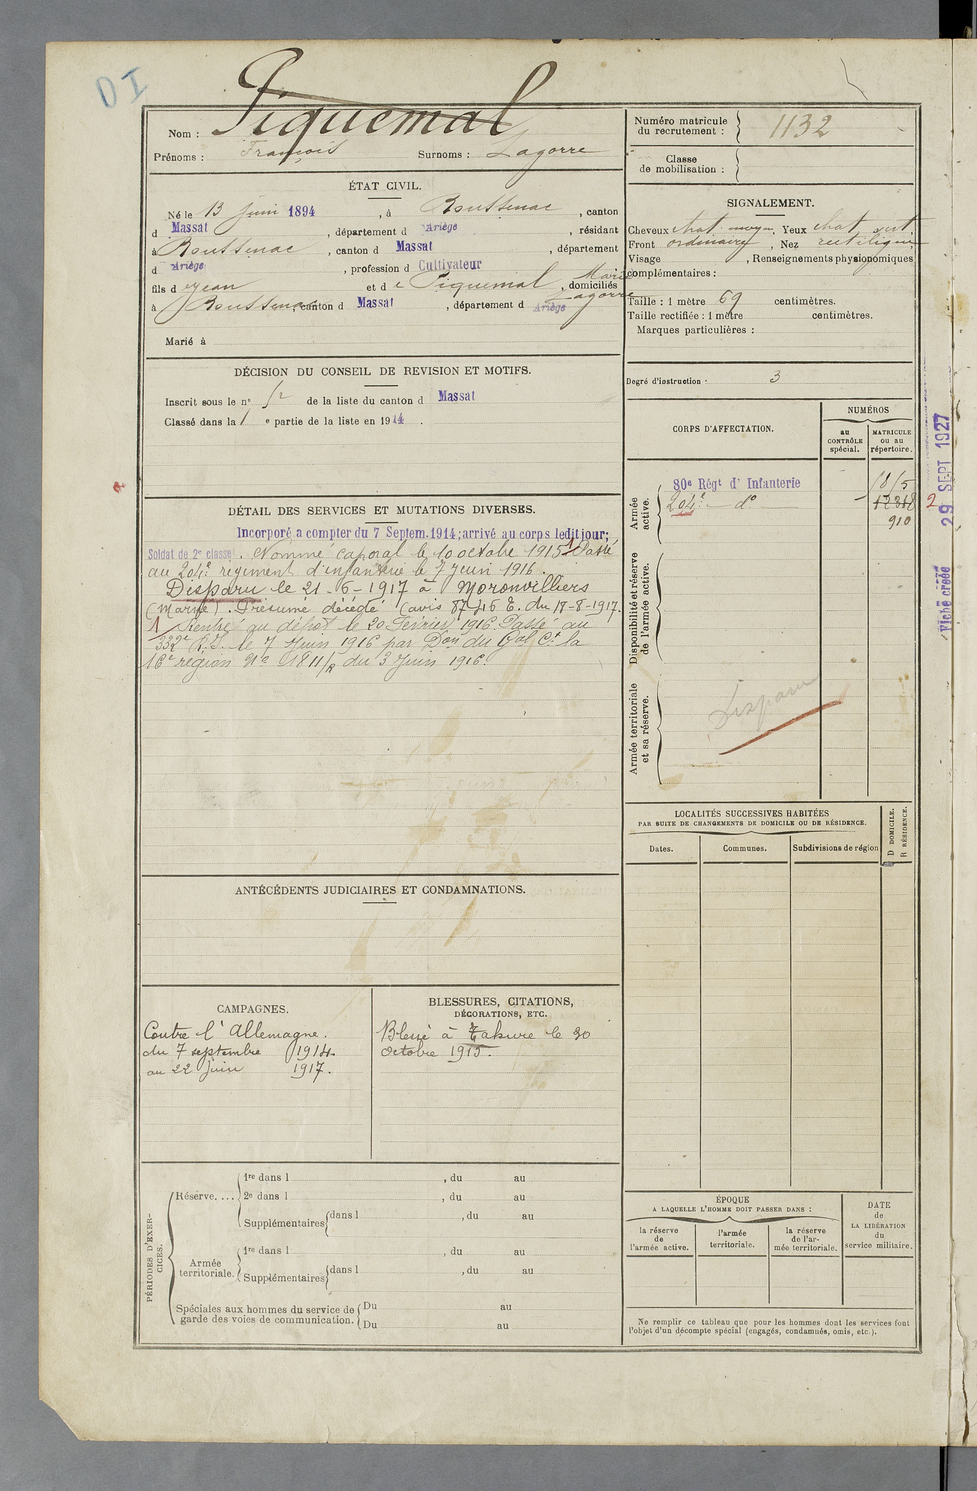 DI
Nom : Piquemal
Prénoms : François Surnoms : Lagorre
ÉTAT CIVIL.
Né le 13 juin 1894, à Boussenac, canton
d Massat, département d Ariège, résidant
à Boussenac, canton d Massat, département
d Ariège, profession d Cultivateur
fils d e Jean et d e Piquemal Marie Lagorre, domiciliés
à Boussenac, canton d Massat, département d Ariège
Marié à
DÉCISION DU CONSEIL DE REVISION ET MOTIFS.
Inscrit sous le n° de la liste du canton d Massat
Classé dans la 1 e partie de la liste en 1914.
DÉTAIL DES SERVICES ET MUTATIONS DIVERSES.
Incorporé a compter du 7 Septem. 1914; arrivé au corps ledit jour;
Soldat de 2e classe. Nommé caporal le 10 octobre 1915. 1 Passé
au 204e régiment d'infanterie le 7 juin 1916.
Disparu le 21-6-1917 à Moronvilliers
(Marne). Présumé décédé (avis 87716 E. du 17-8-1917.
1 Rentré au dépôt le 20 Février 1916. Passé au
332e R.I. le 7 Juin 1916 par Don du Gal Ct la
16e région No 01811/R du 3 Juin 1916.
ANTÉCÉDENTS JUDICIAIRES ET CONDAMNATIONS.
CAMPAGNES.
Contre l'Allemagne.
du 7 septembre 1914.
au 22 juin 1917.
BLESSURES, CITATIONS,
DÉCORATIONS, ETC.
Blessé à Tahure le 30
octobre 1915.
PÉRIODES D'EXERCICES.
Réserve....
1re dans l , du au
2e dans l , du au
Supplémentaires dans l , du au
Armée territoriale.
1re dans l , du au
Supplémentaires dans l , du au
Spéciales aux hommes du service de
garde des voies de communication.
Du au
Du au
Numéro matricule
du recrutement : 1132
Classe
de mobilisation :
SIGNALEMENT.
Cheveux chat moyen Yeux chat
Front ordinaire, Nez rectiligne
Visage , Renseignements physionomiques
complémentaires :
Taille : 1 mètre 69 centimètres.
Taille rectifiée : 1 mètre centimètres.
Marques particulières :
Degré d'instruction : 3
CORPS D'AFFECTATION.
NUMÉROS
au
CONTRÔLE
spécial.
MATRICULE
ou au
répertoire.
Armée
active.
80e Régt d' Infanterie
204e — d°
12318
910
2
Disponibilité et réserve
de l'armée active.
Armée territoriale
et sa réserve.
Disparu
LOCALITÉS SUCCESSIVES HABITÉES
PAR SUITE DE CHANGEMENTS DE DOMICILE OU DE RÉSIDENCE.
Dates.
Communes.
Subdivisions de région
D DOMICILE.
R RÉSIDENCE.
ÉPOQUE
A LAQUELLE L'HOMME DOIT PASSER DANS :
la réserve
de
l'armée active.
l'armée
territoriale.
la réserve
de l'ar-
mée territoriale.
DATE
de
LA LIBÉRATION
du
service militaire.
Ne remplir ce tableau que pour les hommes dont les services font
l'objet d'un décompte spécial (engagés, condamnés, omis, etc.).
Fiche créée 29 SEPT 1927